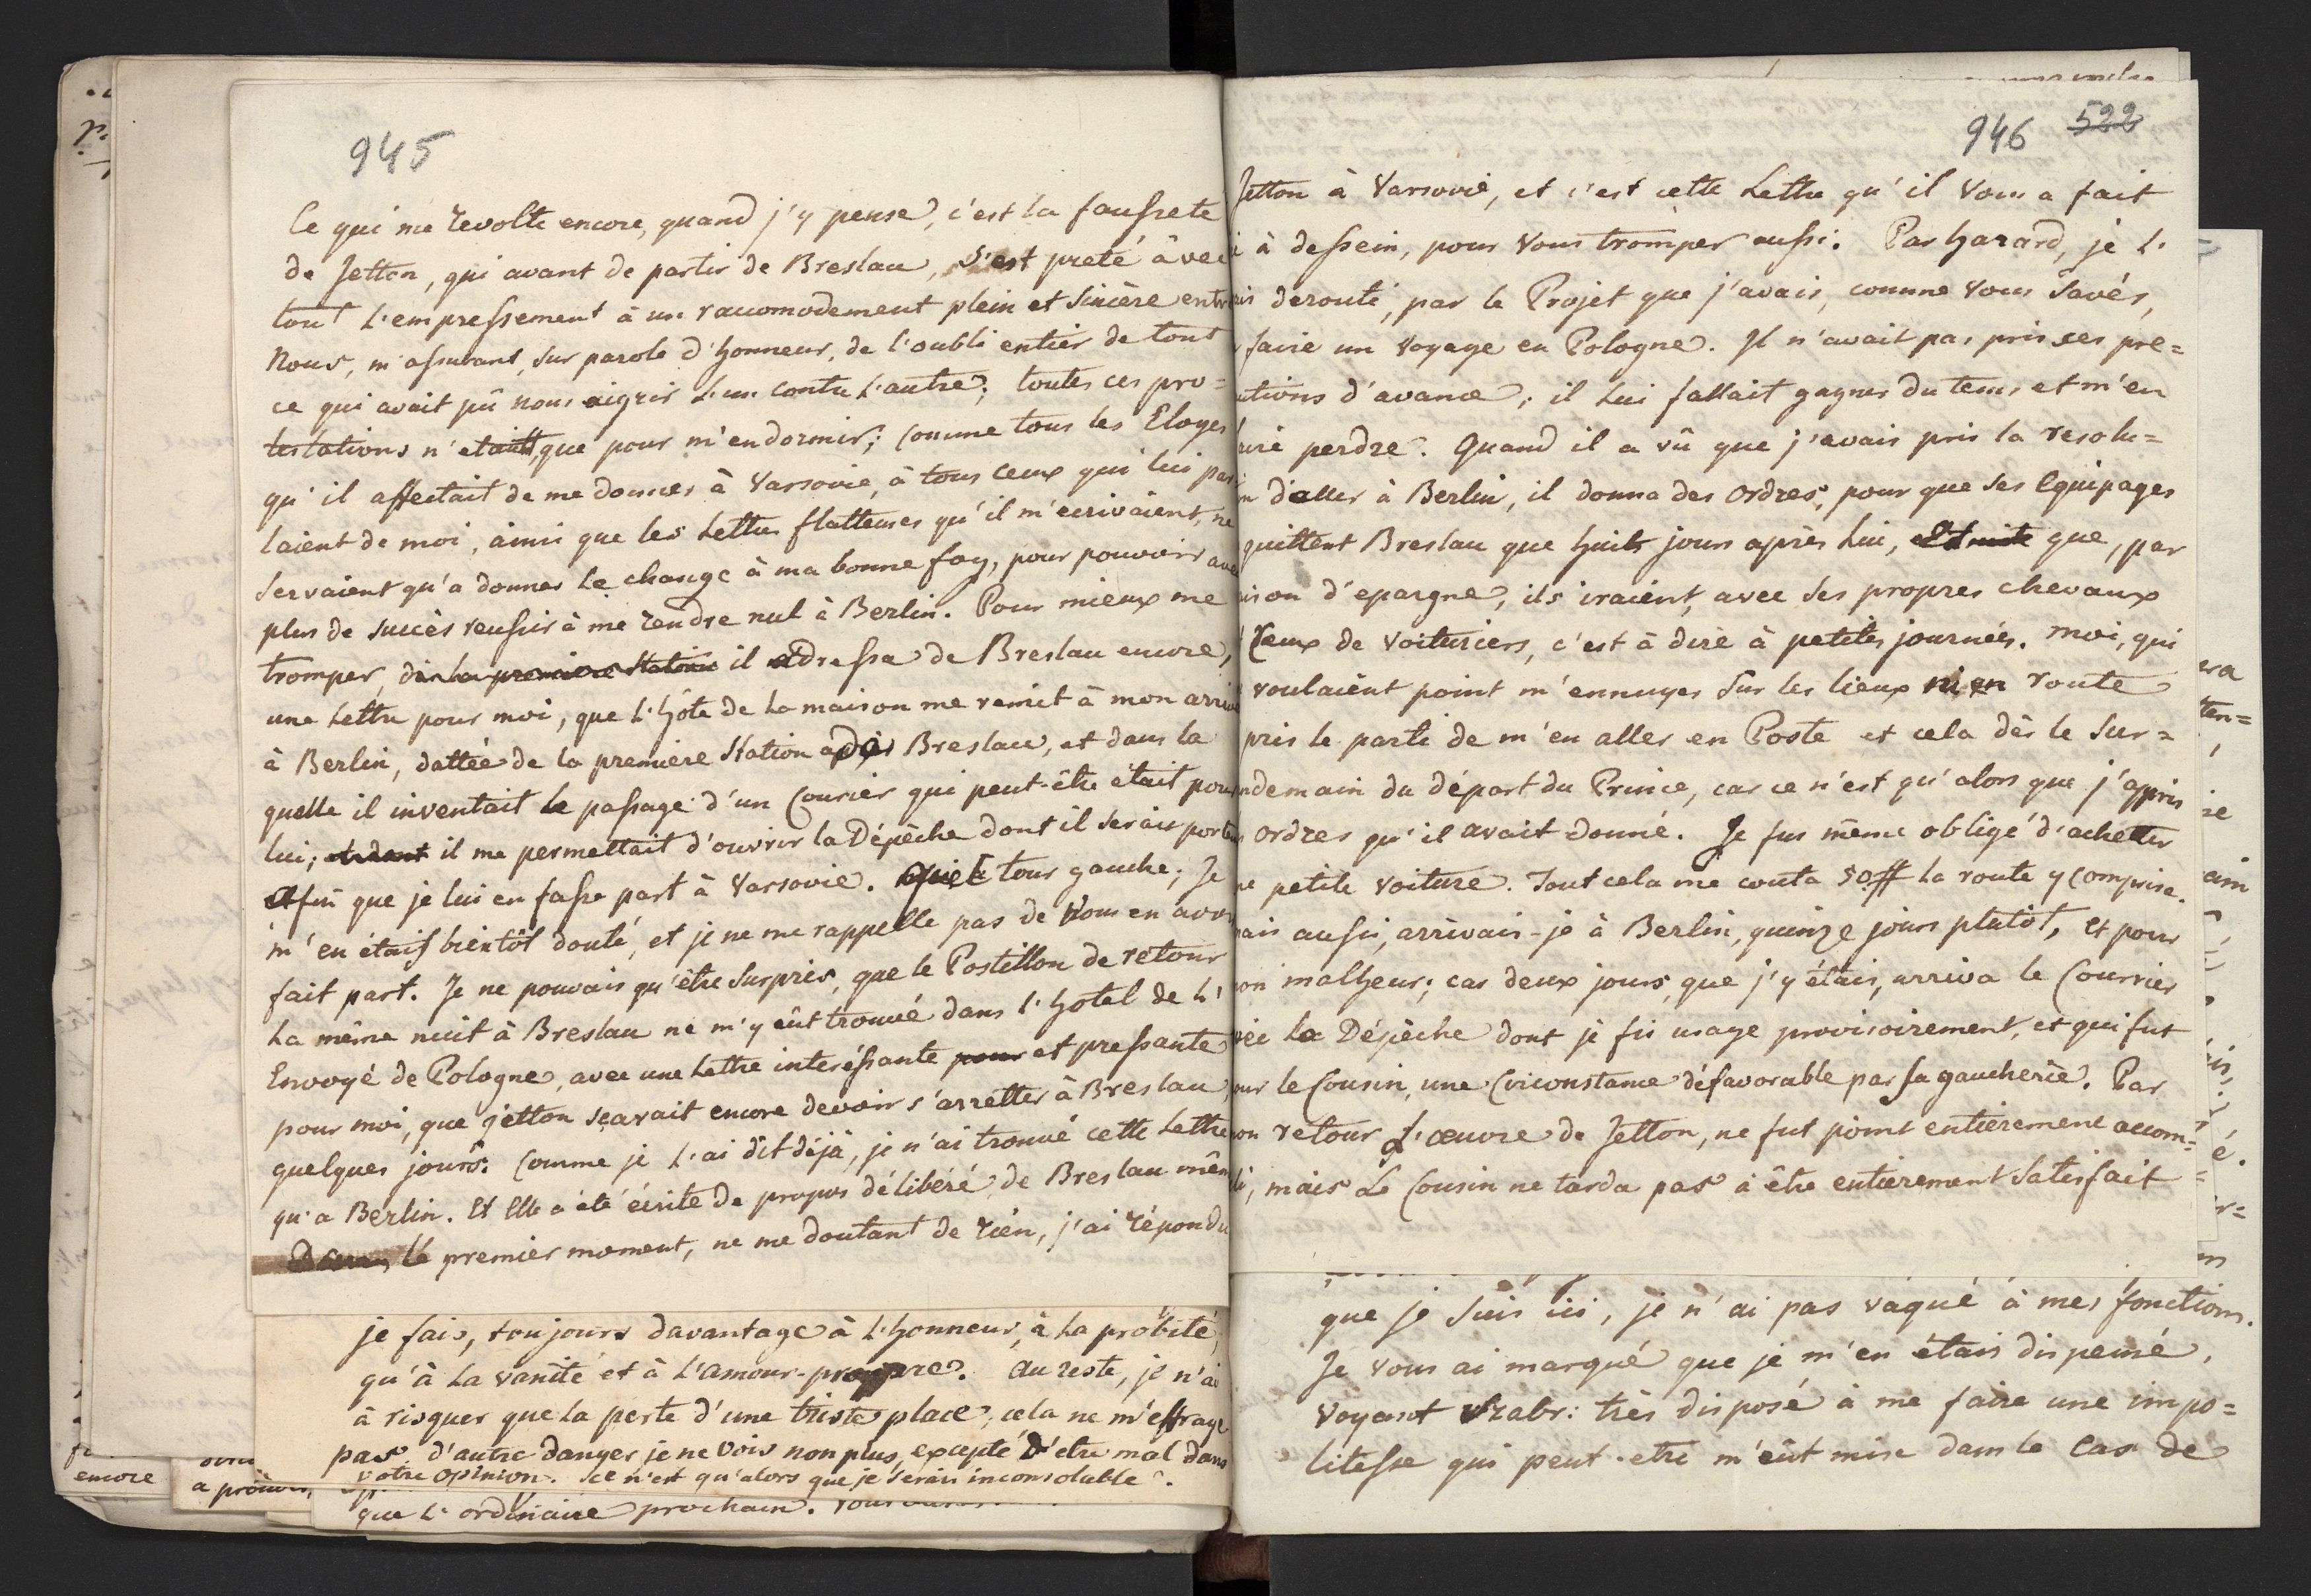 945
Ce qui me revolte encore, quand j'y pense, c'est la faussete
de Jetton, qui avant de partir de Breslau, s'est preté àvec
tout l'empressement à un raccomodement plein et sincère entre
Nous, m'assurant, sur parole d'honneur, de l'oubli entier de tout
ce qui avait pû nous aigrir l'un contre l'autre; toutes ces pro=
testations n'etaient, que pour m'endormir; comme tous les Eloges
qu'il affectait de me donner à Varsovie, à tous ceux qui lui par
laient de moi, àinsi que les Lettres flatteuses qu'il m'ecrivaient, ne
servaient qu'a donner le change à ma bonne foy, pour pouvoir avec
plus de succès reussir à me rendre nul à Berlin. Pour mieux me
tromper, de la premiere Station il addressa de Breslau encore,
une Lettre pour moi, que l'hôte de la maison me remit à mon arrivé
à Berlin, dattée de la première Station après Breslau, et dans la
quelle il inventait le passage d'un Courier qui peut-être était pour
lui; il me permettait d'ouvrir la Dépêche dont il serais porteur
Afin que je lui en fasse part à Varsovie. Quel tour gauche; Je
m'en étais bientôt douté, et je ne me rappelle pas de Vous en avoir
fait part. Je ne pouvais qu'être surpris, que le Postillon de retour
la même nuit à Breslau ne m'y eût trouvé dans l'hotel de l'
Envoyé de Pologne, avec une Lettre interéssante pour et pressante
pour moi, que Jetton sçavait encore devoir s'arretter à Breslau
quelques jours. Comme je l'ai dit déjà, je n'ai trouvé cette Lettre
qu'a Berlin. Et Elle a été écrite de propos délibéré de Breslau mêm
Dans le premier moment, ne me doutant de rién, j'ai répondu
je fais, toujours davantage à l'honneur, à la probité,
qu'à la vanité et à l'amour-propre. Au reste, je n'ai
à risquer que la perte d'une triste place, cela ne m'effraye
pas. d'autre danger je ne vois non plus, excepté d'etre mal dans
votre opinion. Ce n'est qu'alors que je serais inconsolable.
que l'ordinaire prochain.
encore
946 522
Jetton à Varsovie, et c'est cette Lettre qu'il Vous a fait
à dessein, pour Vous tromper aussi. Par hazard, je l'
derouté, par le Projet que j'avais, comme Vous Savés,
faire un Voyage en Pologne. Il n'avait pas pris ses pre=
utions d'avance, il lui fallait gagner du tems et m'en
perdre. Quand il a vû que j'avais pris la resolu=
d'aller à Berlin, il donna des ordres, pour que ses Equipages
quittent Breslau que huit jours après lui, que, par
d'epargne, ils iraient, avec ses propres chevaux
ceux de Voituriers, c'est à dire à petites journées. Moi, qui
voulaient point m'ennuyer sur les lieux ni en route
pris le parti de m'en aller en Poste et cela dès le Sur=
ndemain du départ du Prince, car ce n'est qu'alors que j'appris
ordres qu'il avait donné. Je fus même obligé d'achetter
petite voiture. Tout cela me couta 50 la route y comprise.
aussi, arrivais-je à Berlin, quinze jours plutôt, et pour
malheur; car deux jours, que j'y étais, arriva le Courrier
la Dépèche dont je fis usage provisoirement, et qui fut
le Cousin, une Circonstance défavorable par sa gaucherie. Par
retour l'œuvre de Jetton, ne fut point entièrement accom=
mais le Cousin ne tarda pas à être entierement Satisfait
que je suis ici, je n'ai pas vaqué à mes fonctions.
Je vous ai marqué que je m'en étais dispensé,
voyant très disposé à me faire une impo=
litesse qui peut-etre m'eût mise dans le cas de